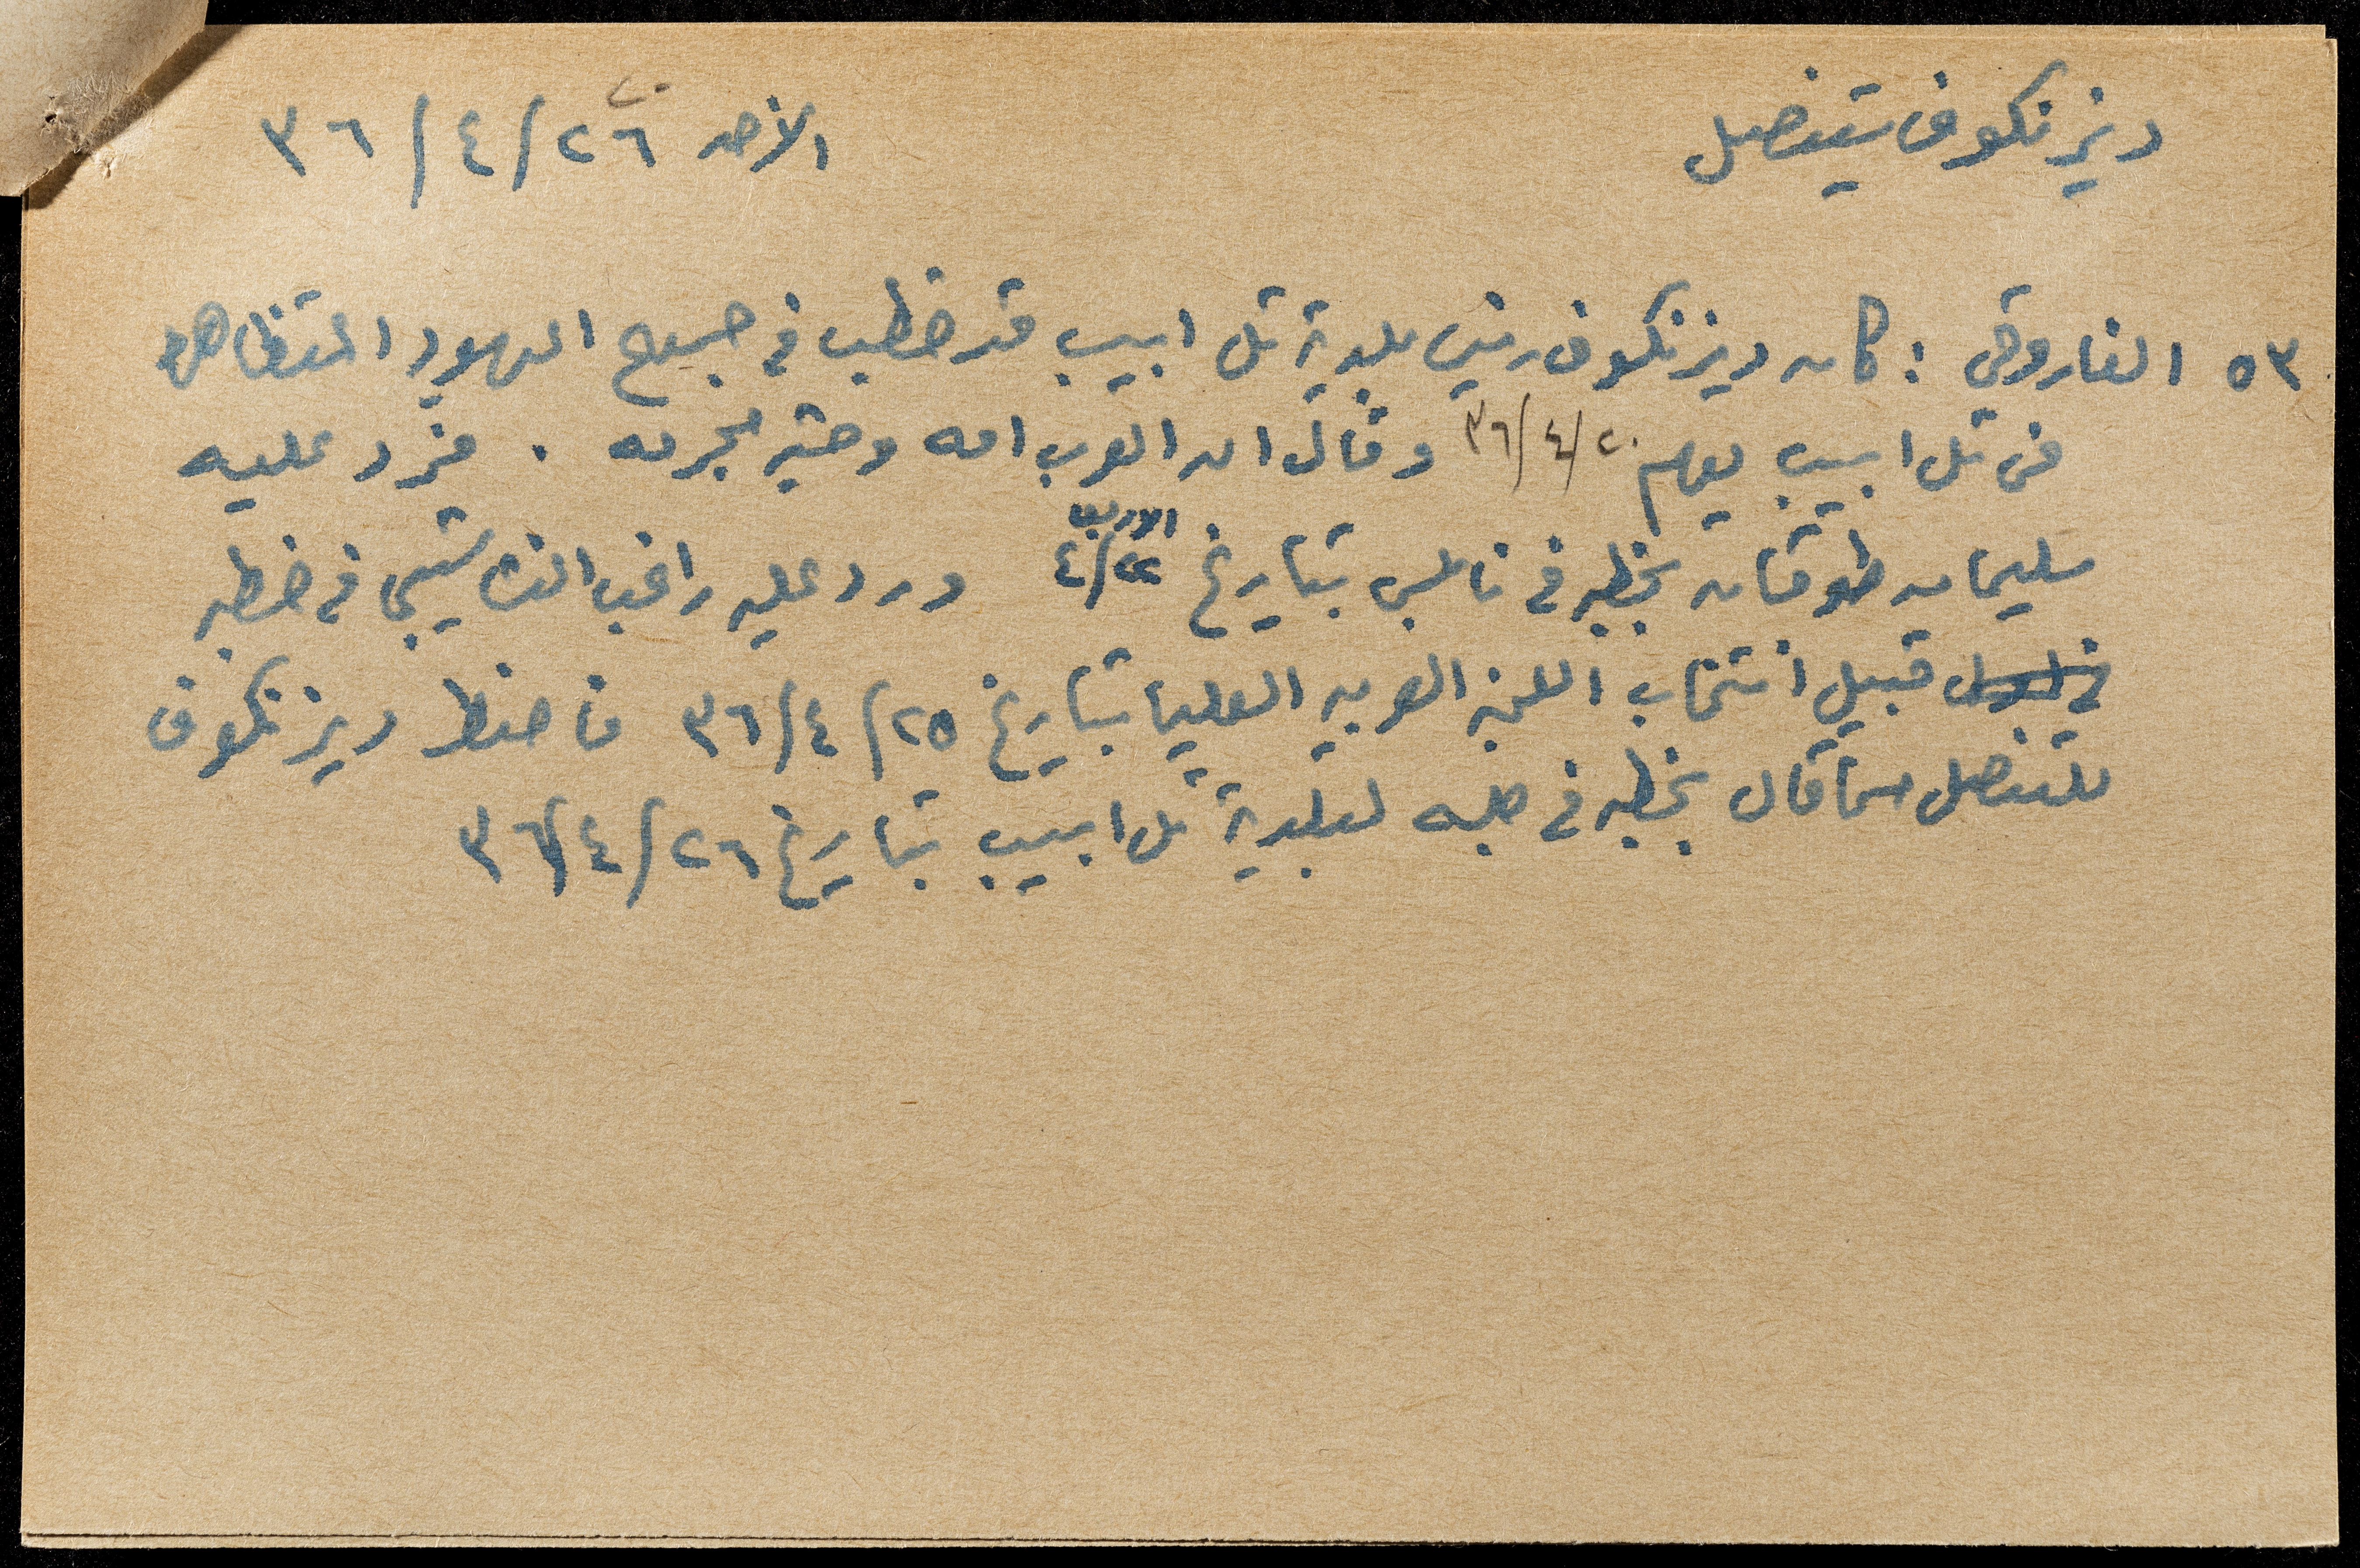 ديزنكوف يتنصل
الأحد ٢٦/٤/٣٦
٥٣ الفاروقي : كان ديزنكوف رئيس بلدية تل ابيب قد خطب في جموع اليهود المتظاهرة
في تل ابيب يوم ٢٠/٤/٣٦ وقال ان العرب امه وحشيه مجرمه . فرد عليه
سليمان طوقان بخطبه في نابلس بتاريخ الاربعاء ٢٢/٤ ورد عليه راغب النشاشيبي في خطبه
قبيل انتخاب اللجنه العربيه العليا بتاريخ ٢٥/٤/٣٦ فاضطر ديزنكوف
للتنصل مما قال بخطبه في جلسه لبلدية تل ابيب بتاريخ ٢٦/٤/٣٦